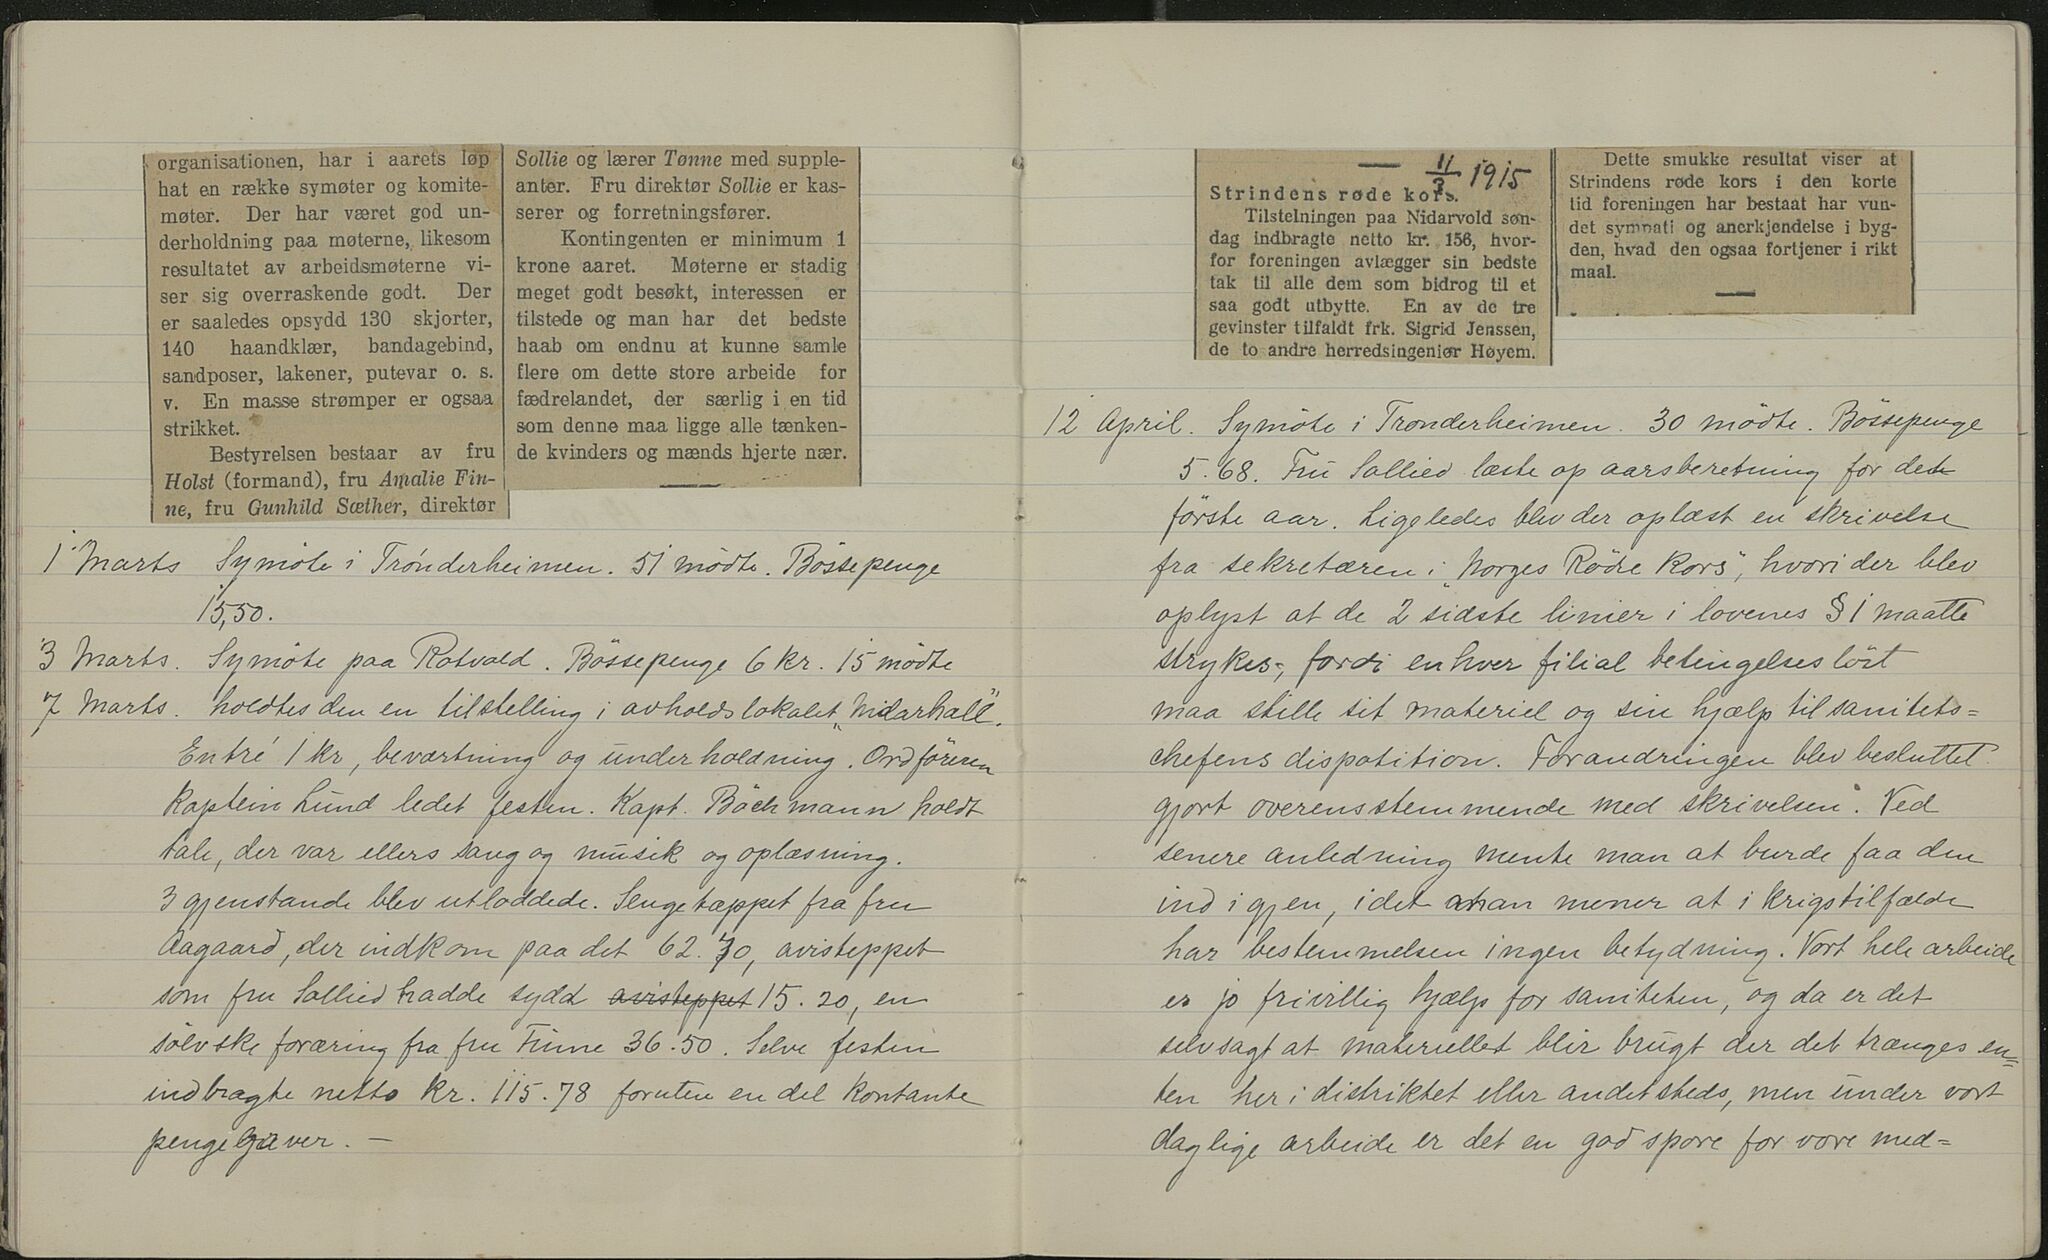 organisationen, har i aarets løp
hat en række symøter og komite-
møter. Der har været god un-
derholdning paa møterne, likesom
resultatet av arbeidsmøterne vi-
ser sig overraskende godt. Der
er saaledes opsydd 130 skjorter,
140 haandklær, bandagebind,
sandposer, lakener, putevar o. s.
v. En masse strømper er ogsaa
strikket.
Bestyrelsen bestaar av fru
Holst (formand), fru Amalie Fin-
ne, fru Gunhild Sæther, direktør
Sollie og lærer Tønne med supple-
anter. Fru direktør Sollie er kas-
serer og forretningsfører.
Kontingenten er minimum 1
krone aaret. Møterne er stadig
meget godt besøkt, interessen er
tilstede og man har det bedste
haab om endnu at kunne samle
flere om dette store arbeide for
fædrelandet, der særlig i en tid
som denne maa ligge alle tænken-
de kvinders og mænds hjerte nær.
1 Marts Symöte i Trönderheimen. 51 mödte. Bössepenge
15,50.
3 Marts. Symöte paa Rotvold. Bössepenge 6 kr. 15 mödte
7 Marts. holdtes den en tilstelling i avholdslokalet „Nidarhall".
Entré 1 kr, beværtning og underholdning. Ordföreren
kaptein Lund ledet festen. Kapt. Bachmann holdt
tale, der var ellers sang og musik og oplæsning.
3 gjenstande blev utloddede. Sengetæppet fra fru
Aagaard, der indkom paa det 62.70, avisteppet
som fru Sollied hadde sydd avisteppet 15.20, en
sölvske foræring fra fru Finne 36.50. Selve festen
indbragte netto kr. 115.78 foruten en del kontante
pengegaver. —
11/3 1915
Strindens røde kors.
Tilstelningen paa Nidarvold søn-
dag indbragte netto kr. 156, hvor-
for foreningen avlægger sin bedste
tak til alle dem som bidrog til et
saa godt utbytte. En av de tre
gevinster tilfaldt frk. Sigrid Jenssen,
de to andre herredsingeniør Høyem.
Dette smukke resultat viser at
Strindens røde kors i den korte
tid foreningen har bestaat har vun-
det sympati og anerkjendelse i byg-
den, hvad den ogsaa fortjener i rikt
maal.
12 April. Symöte i Trönderheimen. 30 mödte. Bössepenge
5.68. Fru Sollied læste op aarsberetning for dete
förste aar. Ligeledes blev der oplæst en skrivelse
fra sekretæren i „Norges Röde Kors", hvori der blev
oplyst at de 2 sidste linier i lovenes § 1 maatte
strykes, fordi enhver filial betingelseslöst
maa stille sit materiel og sin hjælp til sanitets=
chefens dispotition. Forandringen blev besluttet
gjort overensstemmende med skrivelsen. Ved
senere anledning mente man at burde faa den
ind igjen, idet man mener at i krigstilfælde
har bestemmelsen ingen betydning. Vort hele arbeide
er jo frivillig hjælp for saniteten, og da er det
selvsagt at materiellet blir brugt der det trænges en=
ten her i distriktet eller andetsteds, men under vort
daglige arbeide er det en god spore for vore med=